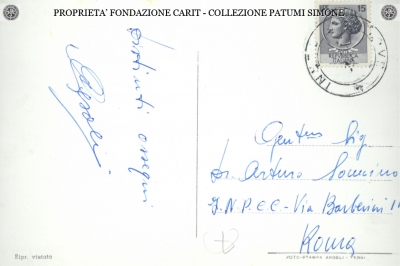 PROPRIETA' FONDAZIONE CARIT - COLLEZIONE PATUMI SIMONE
15
Distinti ossequi
Gent.mo Sig.
Dr. Arturo
I.N.P.E.C.- Via Barberini 11
Roma
Ripr. vietata
FOTO-STAMPA ANGELI - TERNI